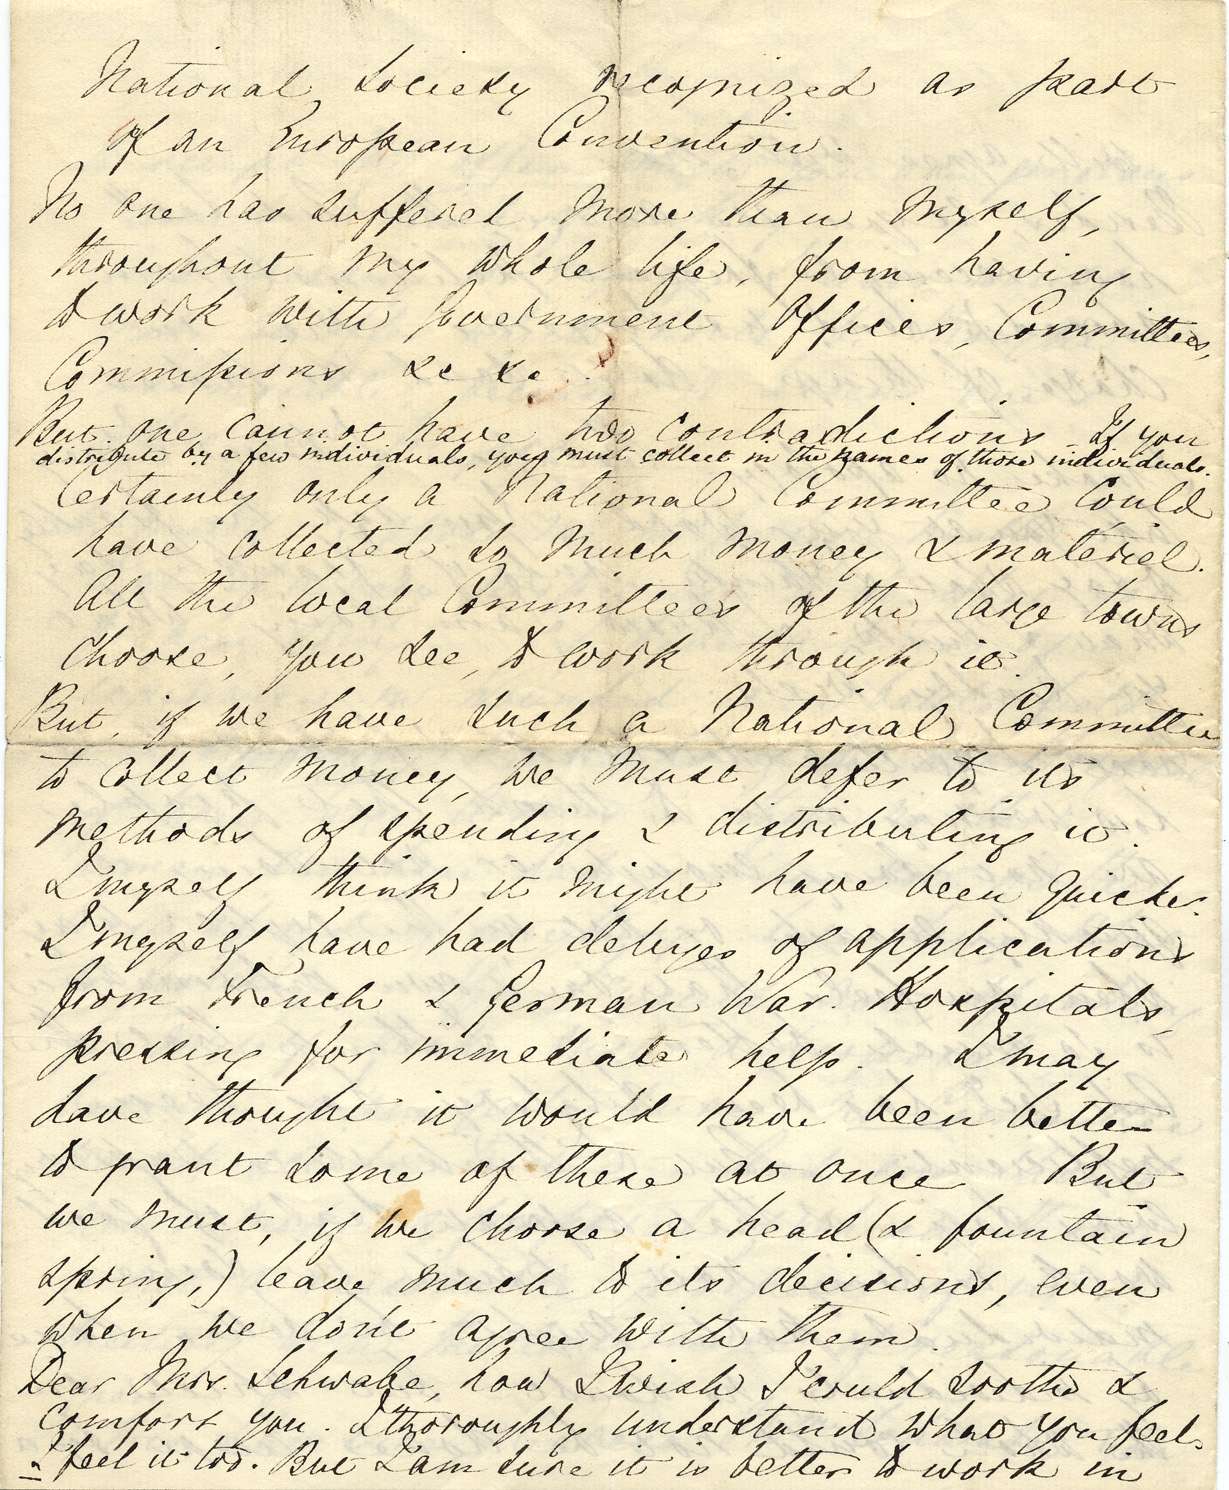 National Society recognized as part
of an European Convention.
No one has suffered more than myself,
throughout my whole life, from having
to work with Government Offices, Committees,
Commissions &c &c.
But one cannot have two contradictions. If you
distribute by a few individuals, you must collect in the names of those individuals.
Certainly only a National Committee could
have collected so much money & matériel.
All the local Committees of the large towns
choose, you see, to work through it.
But, if we have such a National Committee
to collect money, we must defer to its
methods of spending & distributing it.
I myself think it might have been quicker.
I myself have had deluges of applications
from French & German War Hospitals,
pressing for immediate help. I may
have thought it would have been better
to grant some of these at once. But
we must, if we choose a head (& fountain
spring,) leave much to its decisions, even
when we don't agree with them.
Dear Mrs. Schwabe, how I wish I could soothe &
comfort you. I thoroughly understand what you feel.
I feel it too. But I am sure it is better to work in